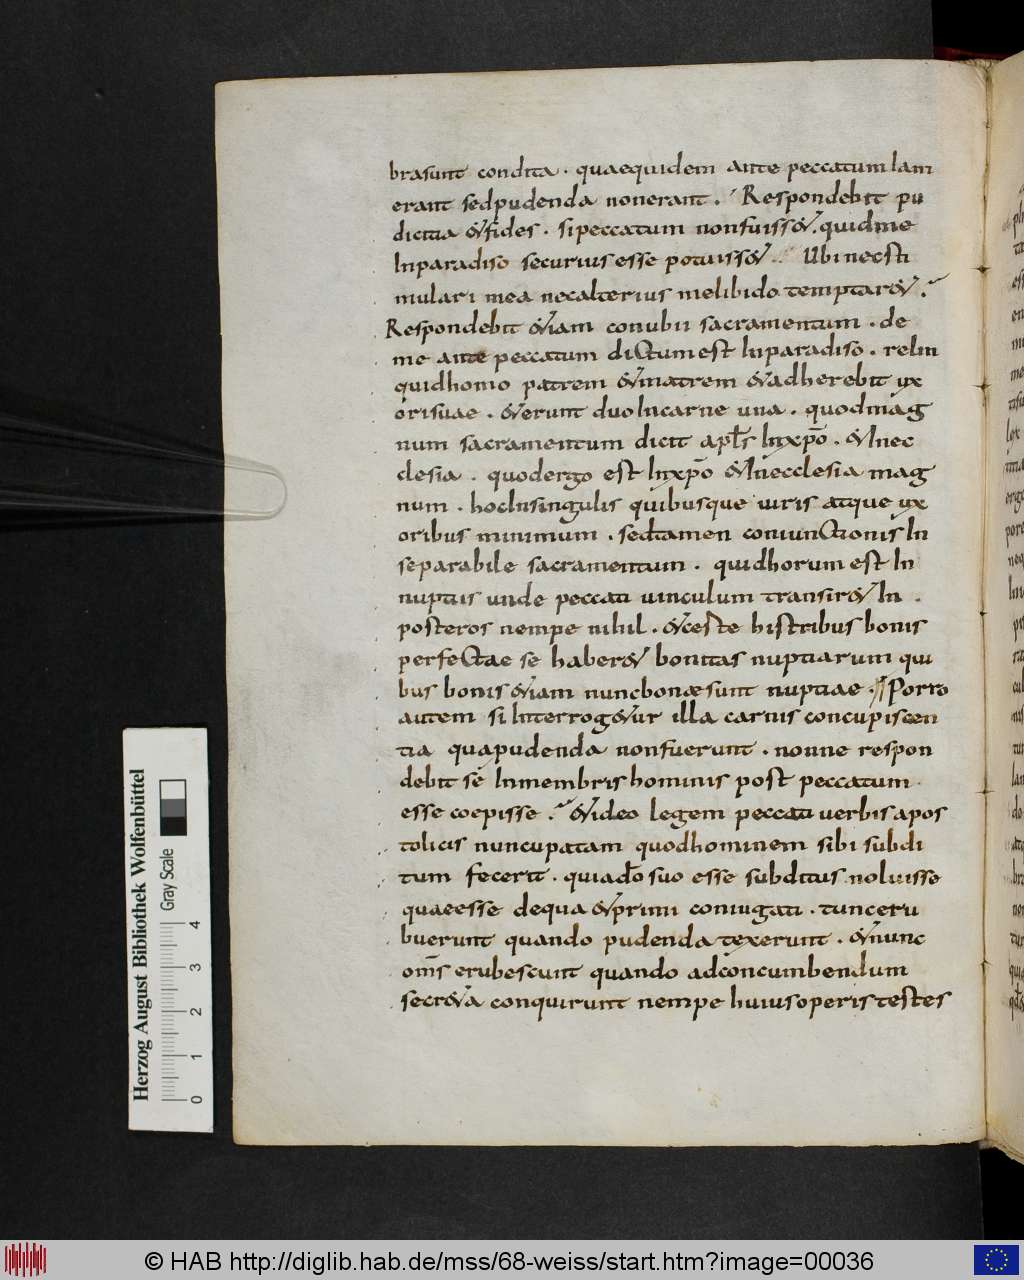 brasunt condita. quaequidem ante peccatum iam
erant sed pudenda non erant. Respondebit pu
dicitia & fides. si peccatum non fuiss&. quid me
In paradiso securius esse potuiss&. Ubi nec sti
mulari mea nec alterius me libido temptar&.
Respondebit &iam conubii sacramentum. de
me ante peccatum dictum est In paradiso. relin
quid homo patrem & matrem & adherebit ux
ori suae. & erunt duo In carne una. quod mag
num sacramentum dicit apłs In xp̄o. & In ec
clesia. quod ergo est In xp̄o & In ecclesia mag
num. hoc In singulis quibusque viris atque ux
oribus minimum. sed tamen coniunctionis In
separabile sacramentum. quid horum est In
nuptiis unde peccati vinculum transir& In
posteros nempe nihil. & certe his tribus bonis
perfectae se haber& bonitas nuptiarum qui
bus bonis &iam nunc bonæ sunt nuptiae. Porro
autem si Interrog&ur illa carnis concupiscen
tia qua pudenda non fuerunt. nonne respon
debit se In membris hominis post peccatum
esse coepisse. & ideo legem peccati verbis apos
tolicis nuncupatam quod hominem sibi subdi
tum fecerit. quia dō suo esse subditus noluisse
quae esse de qua & primi coniugati. tunc eru
buerunt quando pudenda texerunt. & nunc
om̄s erubescunt quando ad concumbendum
secr&a conquirunt nempe huius operis testes
Herzog August Bibliothek Wolfenbüttel
Gray Scale
0 1 2 3 4
© HAB http://diglib.hab.de/mss/68-weiss/start.htm?image=00036